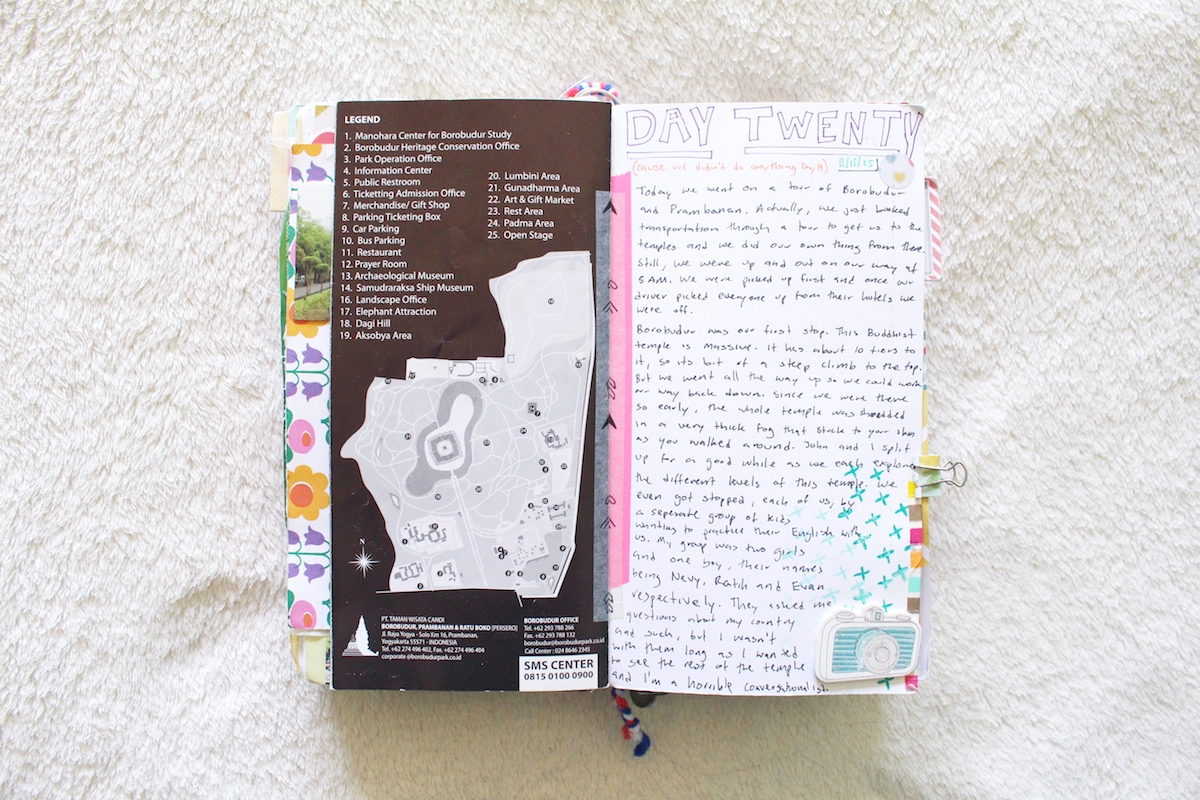 LEGEND
1. Manohara Center for Borobudur Study
2. Borobudur Heritage Conservation Office
3. Park Operation Office
4. Information Center
5. Public Restroom
6. Ticketting Admission Office
7. Merchandise/ Gift Shop
8. Parking Ticketing Box
9. Car Parking
10. Bus Parking
11. Restaurant
12. Prayer Room
13. Archaeological Museum
14. Samudraraksa Ship Museum
16. Landscape Office
17. Elephant Attraction
18. Dagi Hill
19. Aksobya Area
20. Lumbini Area
21. Gunadharma Area
22. Art & Gift Market
23. Rest Area
24. Padma Area
25. Open Stage
N
PT. TAMAN WISATA CANDI
BOROBUDUR, PRAMBANAN & RATU BOKO [PERSERO]
Jl. Raya Yogya - Solo Km 16, Prambanan,
Yogyakarta 55571 - INDONESIA
Tel. +62 274 496 402, Fax. +62 274 496 404
corporate @borobudurpark.co.id
BOROBUDUR OFFICE
Tel. +62 293 788 266
Fax. +62 293 788 132
borobudur@borobudurpark.co.id
Call Center : 024 8646 2345
SMS CENTER
0815 0100 0900
DAY TWENTY
(cause we didn't do anything Day 19) 11/11/15
Today we went on a tour of Borobudur
and Prambanan. Actually, we just booked
transportation through a tour to get us to the
temples and we did our own thing from there.
Still, we were up and out on our way at
5AM. We were picked up first and once our
driver picked everyone up from their hotels we
were off.
Borobudur was our first stop. This Buddhist
temple is massive. It has about 10 tiers to
it, so its bit of a steep climb to the top.
But we went all the way up so we could work
our way back down. Since we were there
so early, the whole temple was shrouded
in a very thick fog that stuck to your skin
as you walked around. John and I split
up for a good while as we each explored
the different levels of this temple. We
even got stopped, each of us, by
a seperate group of kids
wanting to practice their English with
us. My group was two girls
and one boy, their names
being Nevy, Ratih and Evan
respectively. They asked me
questions about my country
and such, but I wasn't
with them long as I wanted
to see the rest of the temple
and I'm a horrible conversationalist.